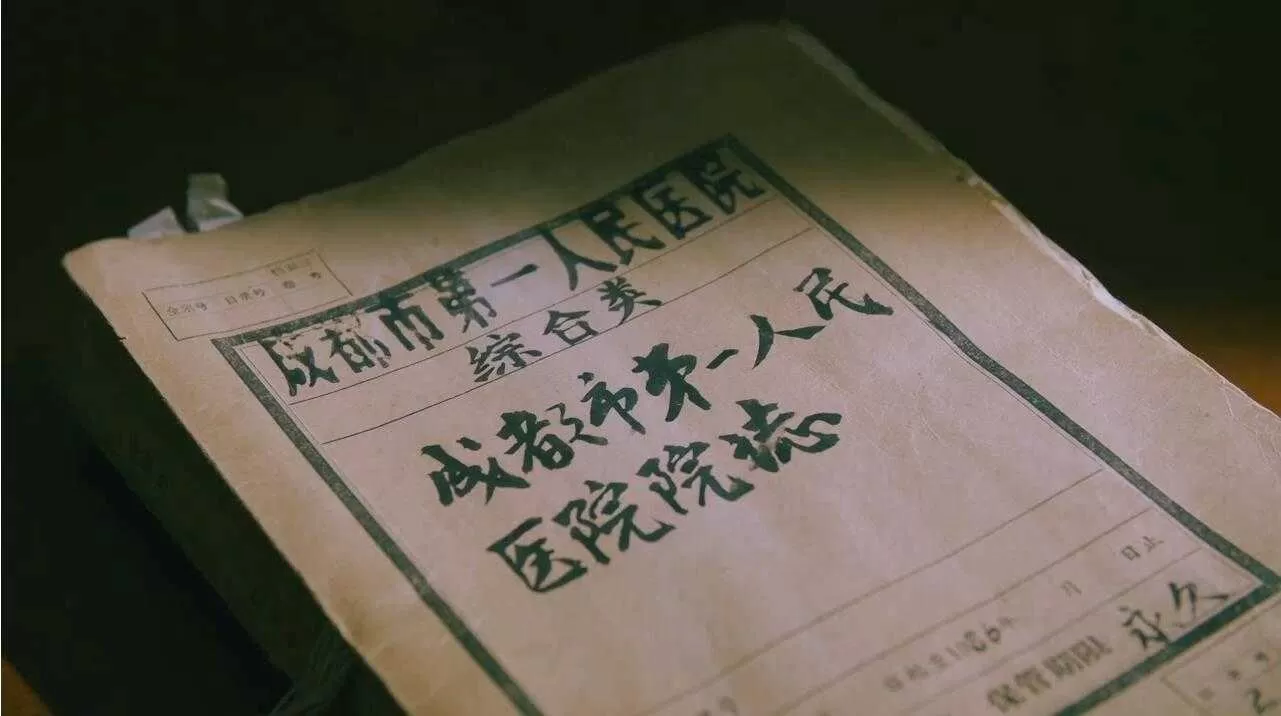 档案号
全宗号 目录号 卷号
成都市第一人民医院
综合类
成都市第一人民
医院院誌
1986年 月 日止
保管期限 永久